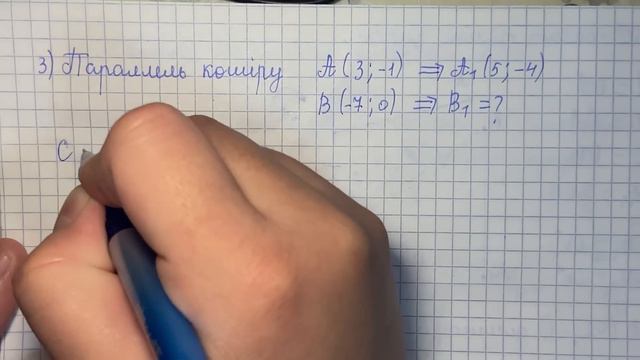 3) Параллель көшіру A (3; -1) ⇒ A₁ (5; -4)
B (-7; 0) ⇒ B₁ = ?
C